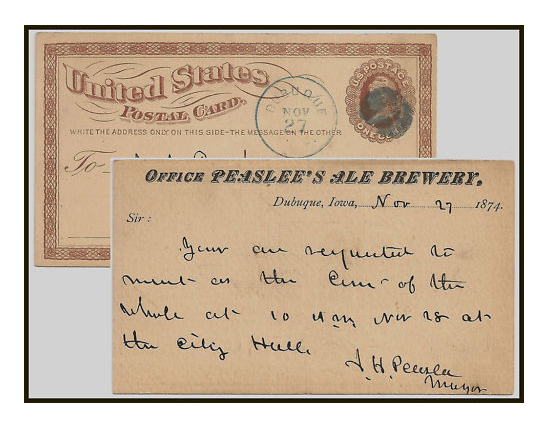 United States
POSTAL CARD.
U.S. POSTAGE
ONE CENT
DUBUQUE
NOV
27
WRITE THE ADDRESS ONLY ON THIS SIDE-THE MESSAGE ON THE OTHER
To
OFFICE PEASLEE'S ALE BREWERY.
Dubuque, Iowa, Nov 27 1874.
Sir:
Your are requested to
meet as the Com of the
whole at 10 AM Nov 28 at
the City Hall.
J. H. Peaslee
Mayor